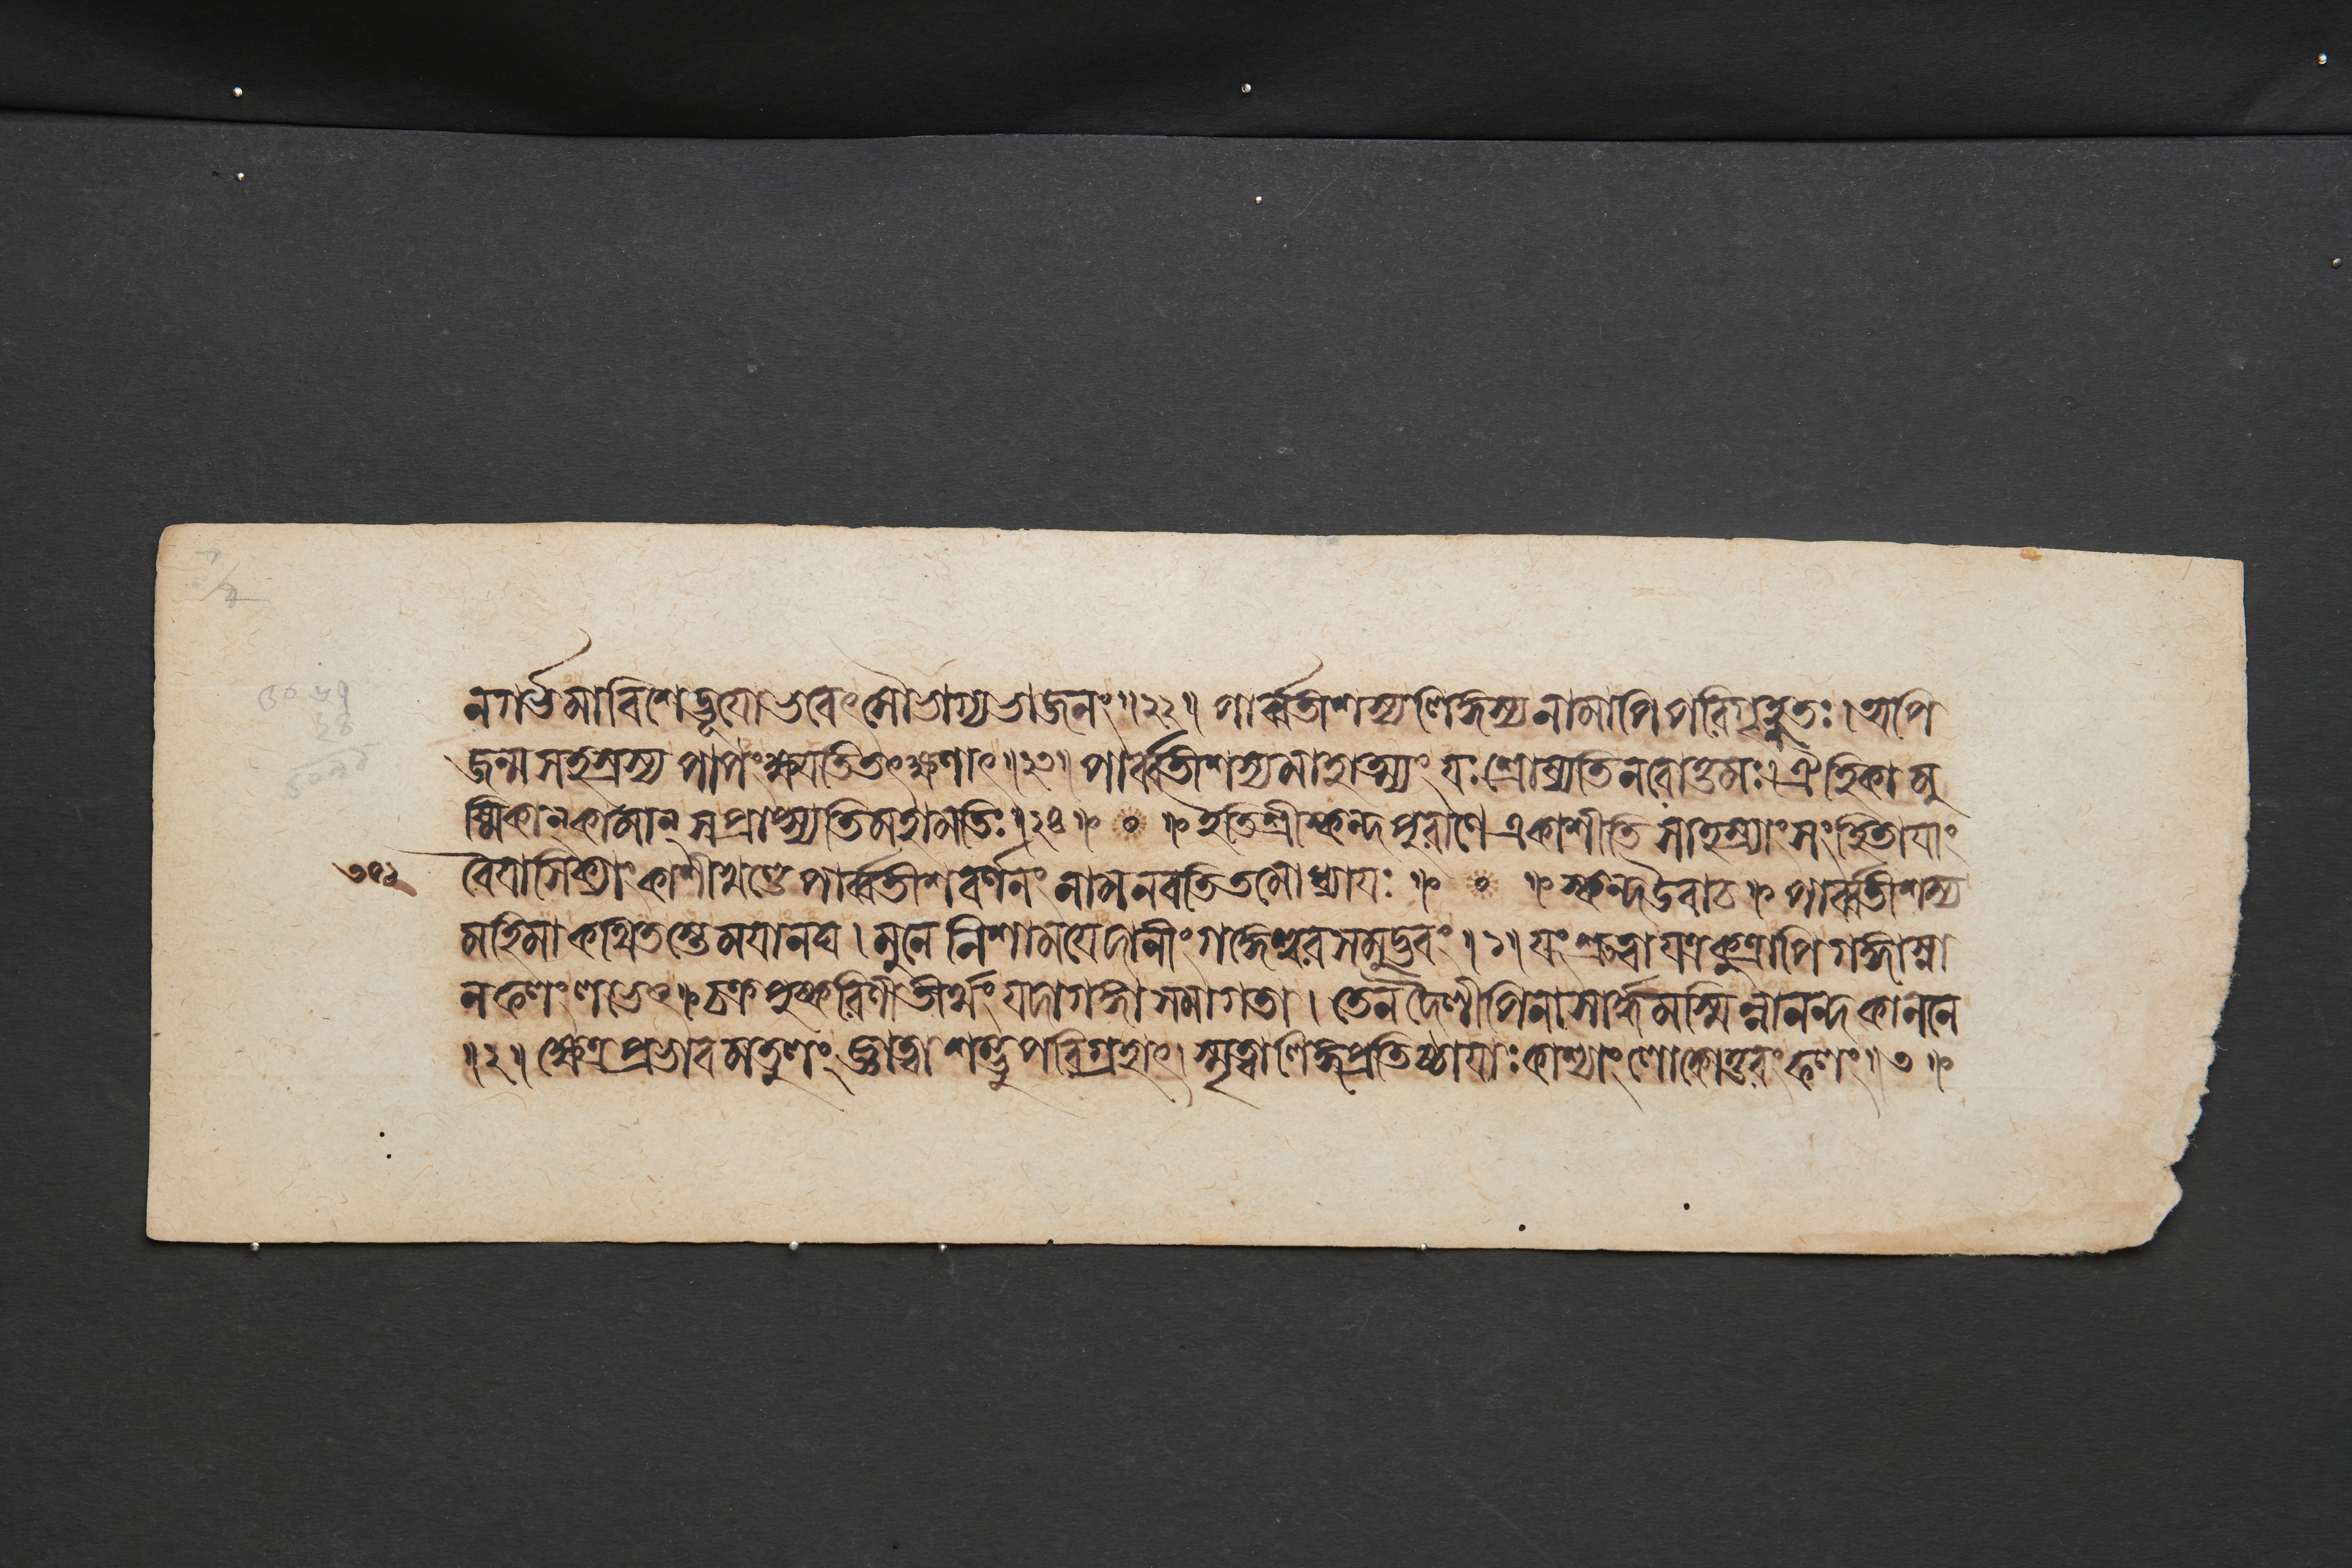 ন গর্ভমাবিশেদ্ভূয়ো ভবেৎ সৌভাগ্যভাজনং ॥ ২২ ॥ পার্ব্বতীশস্য লিঙ্গস্য নামাপি পরিগৃহ্নতঃ । অপি
জন্মসহস্রস্য পাপং ক্ষয়তি তৎক্ষণাৎ ॥ ২৩ ॥ পার্ব্বতীশস্য মাহাত্ম্যং যঃ শ্রোষ্যতি নরোত্তমঃ । ঐহিকামু
ষ্মিকান্ কামান্ স প্রাপ্স্যতি মহামতিঃ ॥ ২৪ ॥ ০ ॥ ইতি শ্রীস্কন্দপুরাণে একাশীতিসাহস্র্যাং সংহিতায়াং
বৈয়াসিক্যাং কাশীখণ্ডে পার্ব্বতীশবর্ণনং নাম নবতিতমোধ্যায়ঃ ॥ ০ ॥ স্কন্দ উবাচ ॥ পার্ব্বতীশস্য
মহিমা কথিতস্তে ময়ানঘ । মুনে নিশাময়েদানীং গঙ্গেশ্বরসমুদ্ভবং ॥ ১ ॥ যং শ্রুত্বা যত্রকুত্রাপি গঙ্গাস্না
নফলং লভেৎ ॥ চক্রপুষ্করিণীতীর্থং যদা গঙ্গা সমাগতা । তেন দৈলীপিনা সার্দ্ধমস্মিন্নানন্দকাননে
॥ ২ ॥ ক্ষেত্রপ্রভাবমতুলং জ্ঞাত্বা শম্ভুপরিগ্রহাৎ । স্মৃত্বা লিঙ্গপ্রতিষ্ঠায়াঃ কাশ্যাং লোকোত্তরং ফলং ॥ ৩ ॥